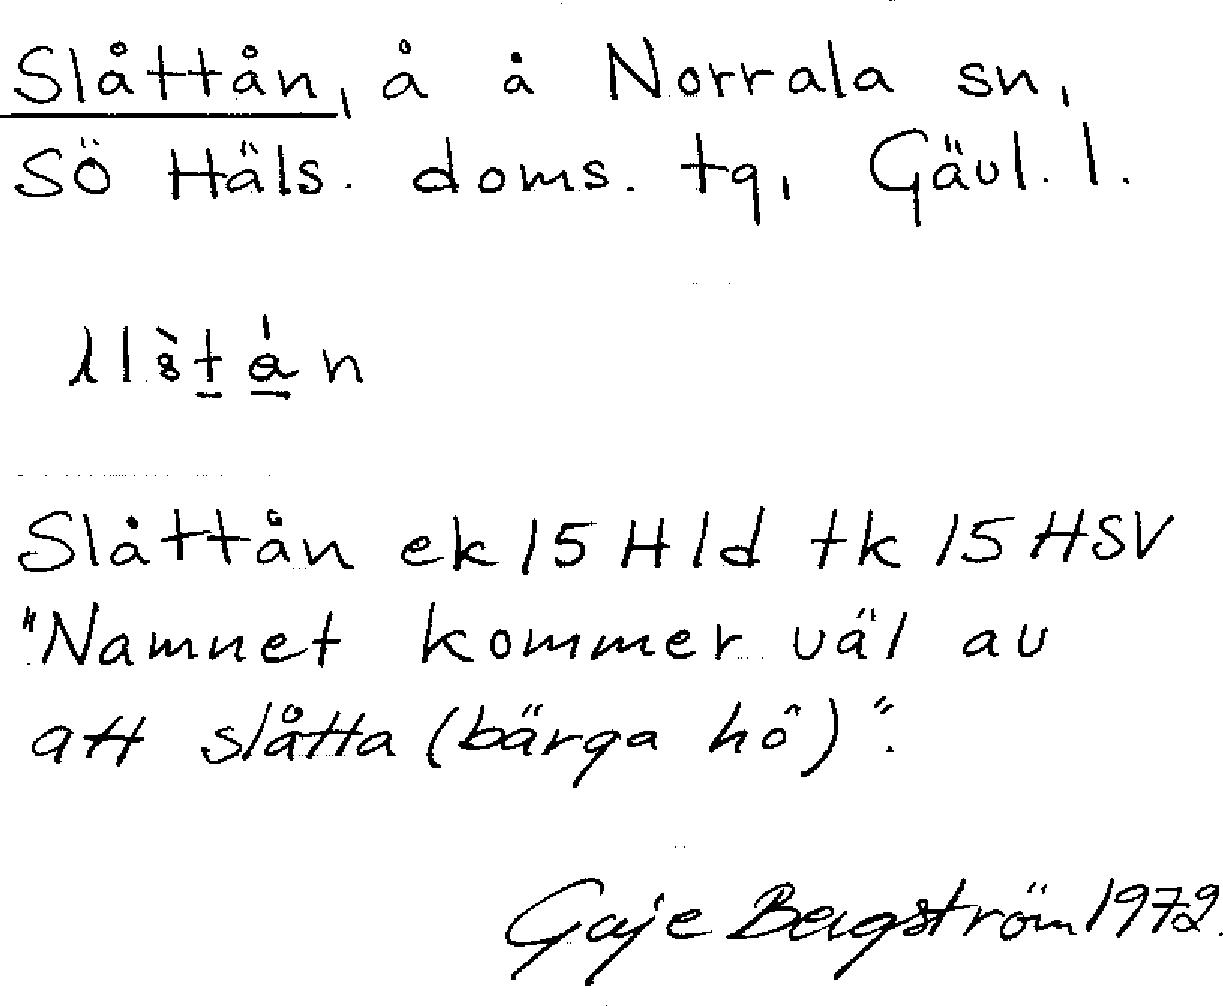 Slåttån, å å Norrala sn,
SÖ Häls. doms. tg, Gävl. l.
Slåttån ek 15 Hld tk 15 HSV
"Namnet kommer väl av
att slåtta (bärga hö)".
Bergström 1972.